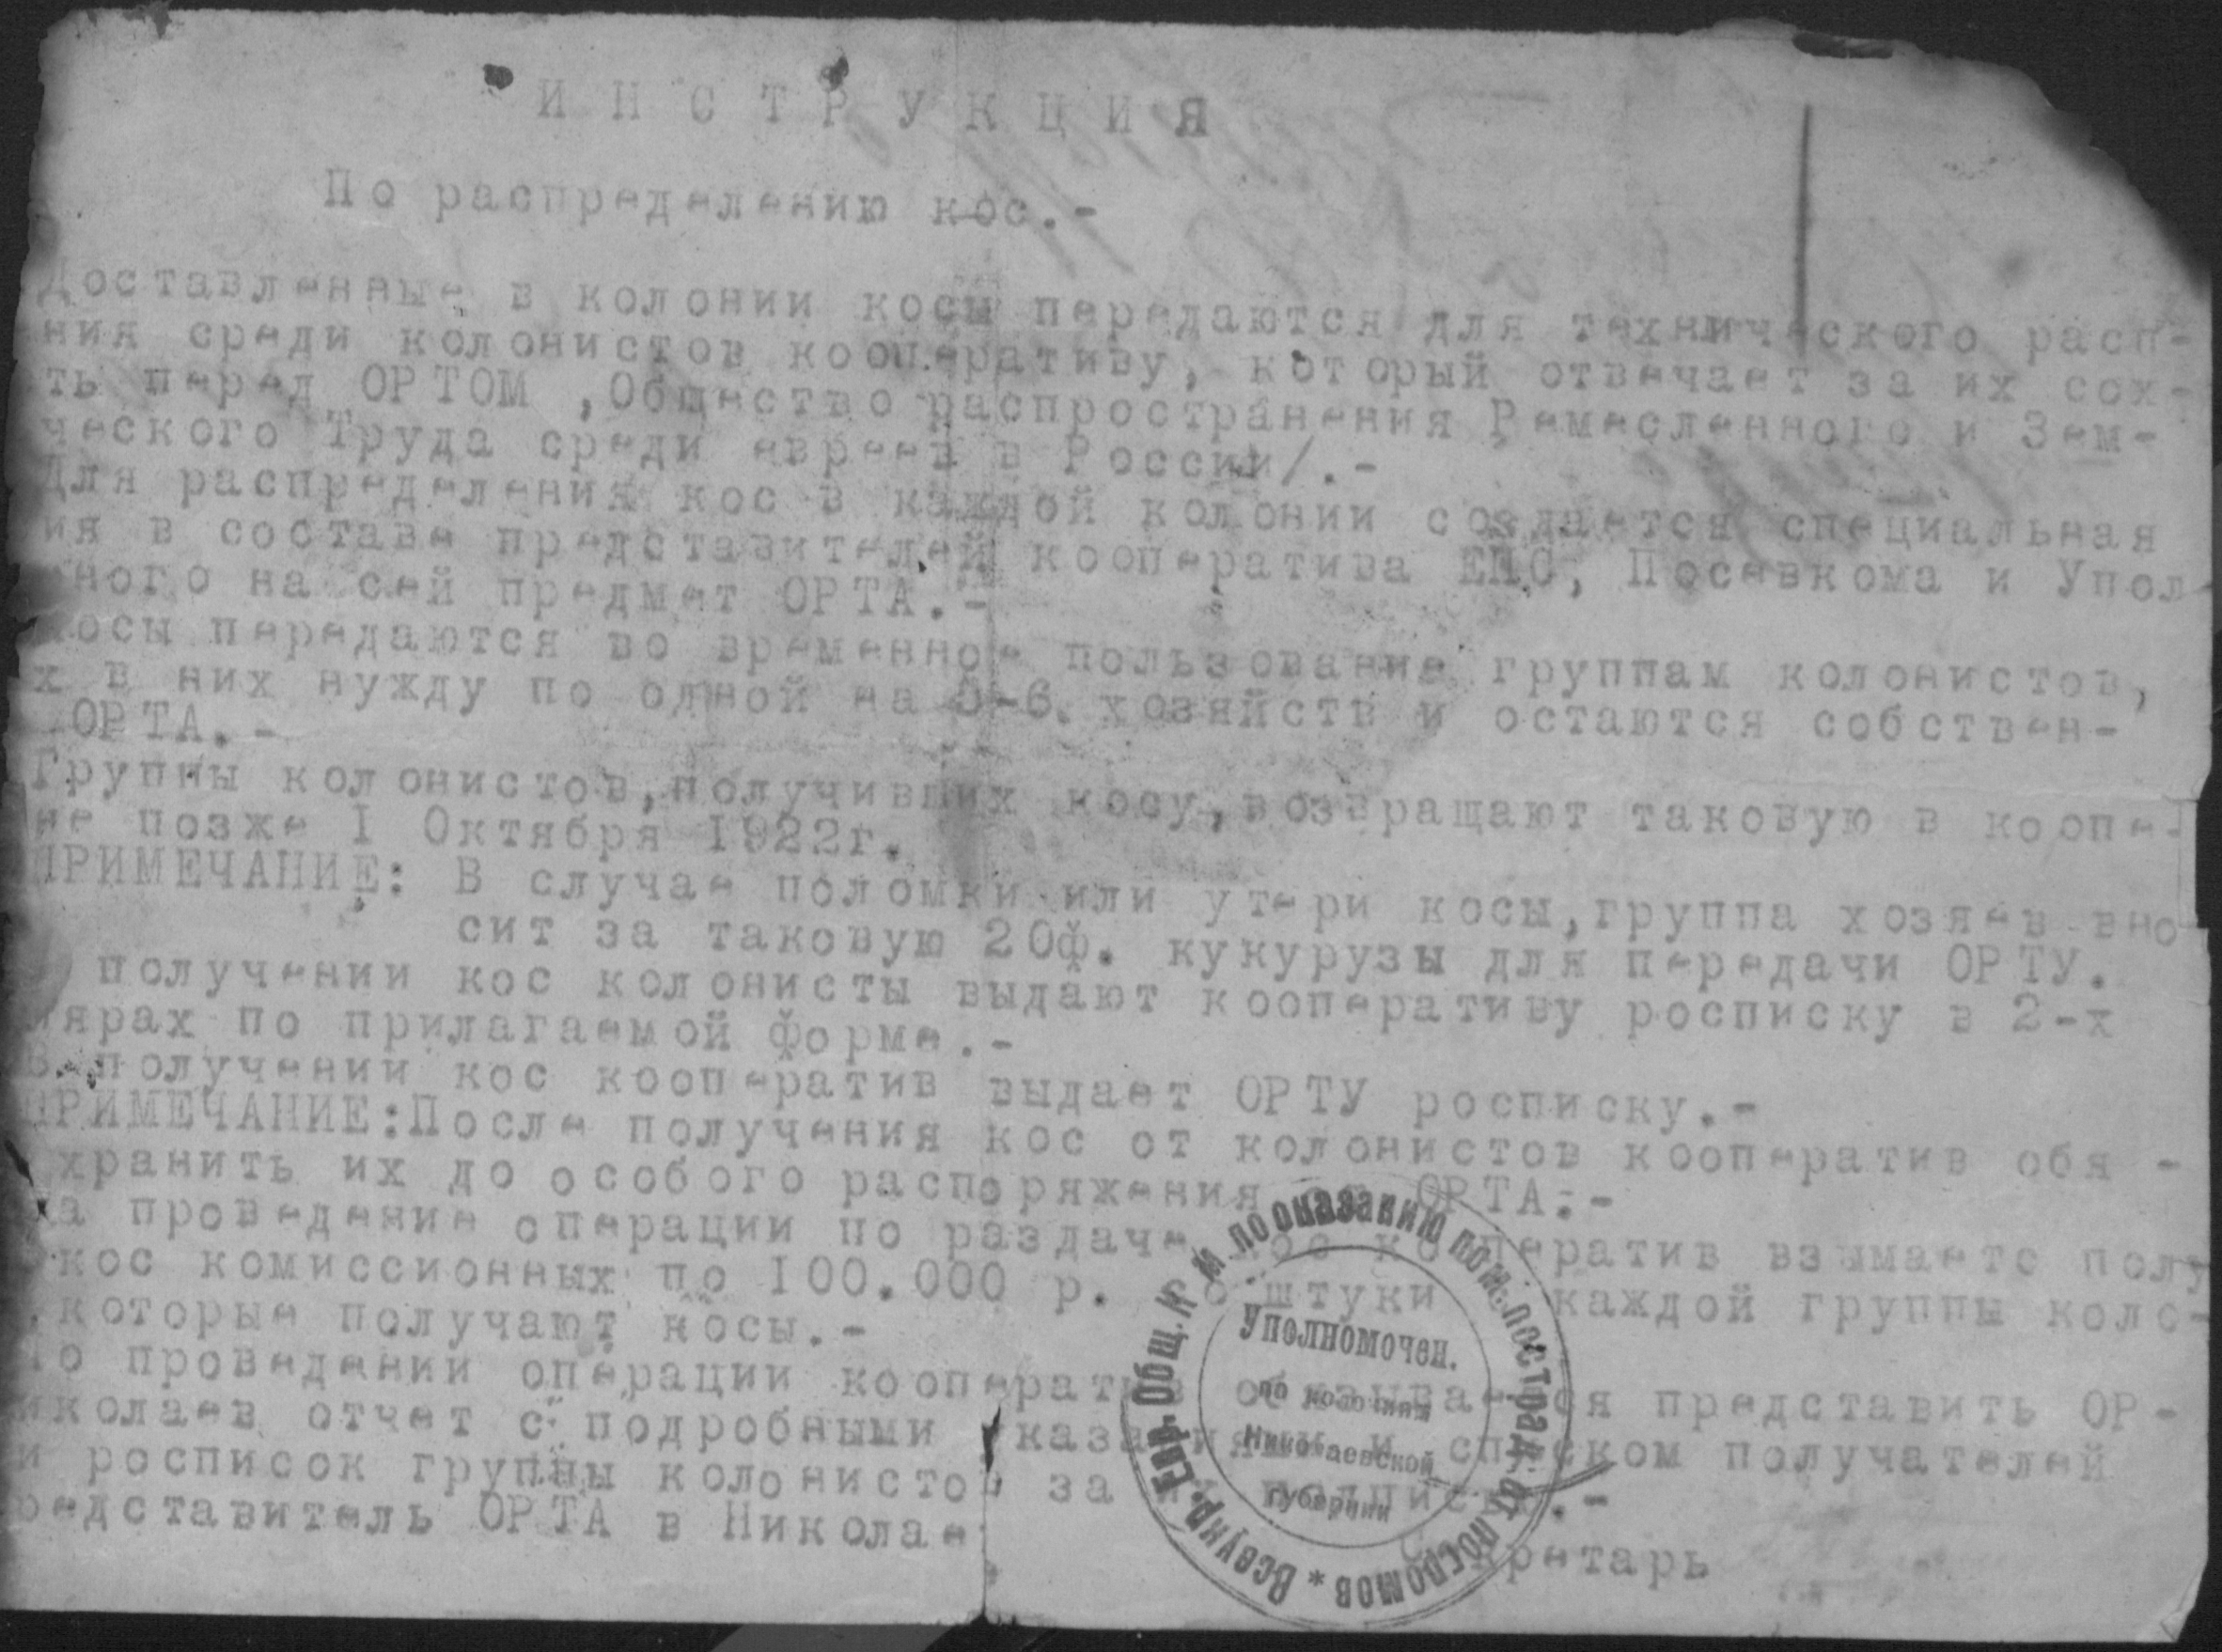 ИНСТРУКЦИЯ
По распределению кос.-
Доставленные в колонии косы передаются для технического расп-
ния среди колонистов кооперативу, который отвечает за их сох-
ть перед ОРТОМ ,Общество распространения Ремесленного и Зем-
ческого Труда среди евреев в России/.-
Для распределения кос в каждой колонии создается специальная
ия в составе представителей кооператива ЕПО, Посевкома и Упол-
ного на сей предмет ОРТА.-
косы передаются во временное пользование группам колонистов,
х в них нужду по одной на 5-6. хозяйств и остаются собствен-
ОРТА.-
Группы колонистов,получивших косу,возвращают таковую в коопе-
не позже I Октября 1922г.
ПРИМЕЧАНИЕ: В случае поломки или утери косы,группа хозяев вно
сит за таковую 20ф. кукурузы для передачи ОРТУ.
получении кос колонисты выдают кооперативу росписку в 2-х
лярах по прилагаемой форме.-
В получении кос кооператив выдает ОРТУ росписку.-
ПРИМЕЧАНИЕ:После получения кос от колонистов кооператив обя -
хранить их до особого распоряжения от ОРТА.-
за проведение операции по раздаче кос кооператив взымаетс полу
кос комиссионных по I00.000 р. со штуки с каждой группы коло-
,которые получают косы.-
По проведении операции кооператив обязывается представить ОР-
иколаев отчет с подробными указаниями и списком получателей
и росписок группы колонистов за их подписью.-
редставитель ОРТА в Николае
Секретарь
Всеукр. Евр. Общ. К-т по оказанию пом. пострад. от погромов *
Уполномочен.
по колониям
Николаевской
губернии